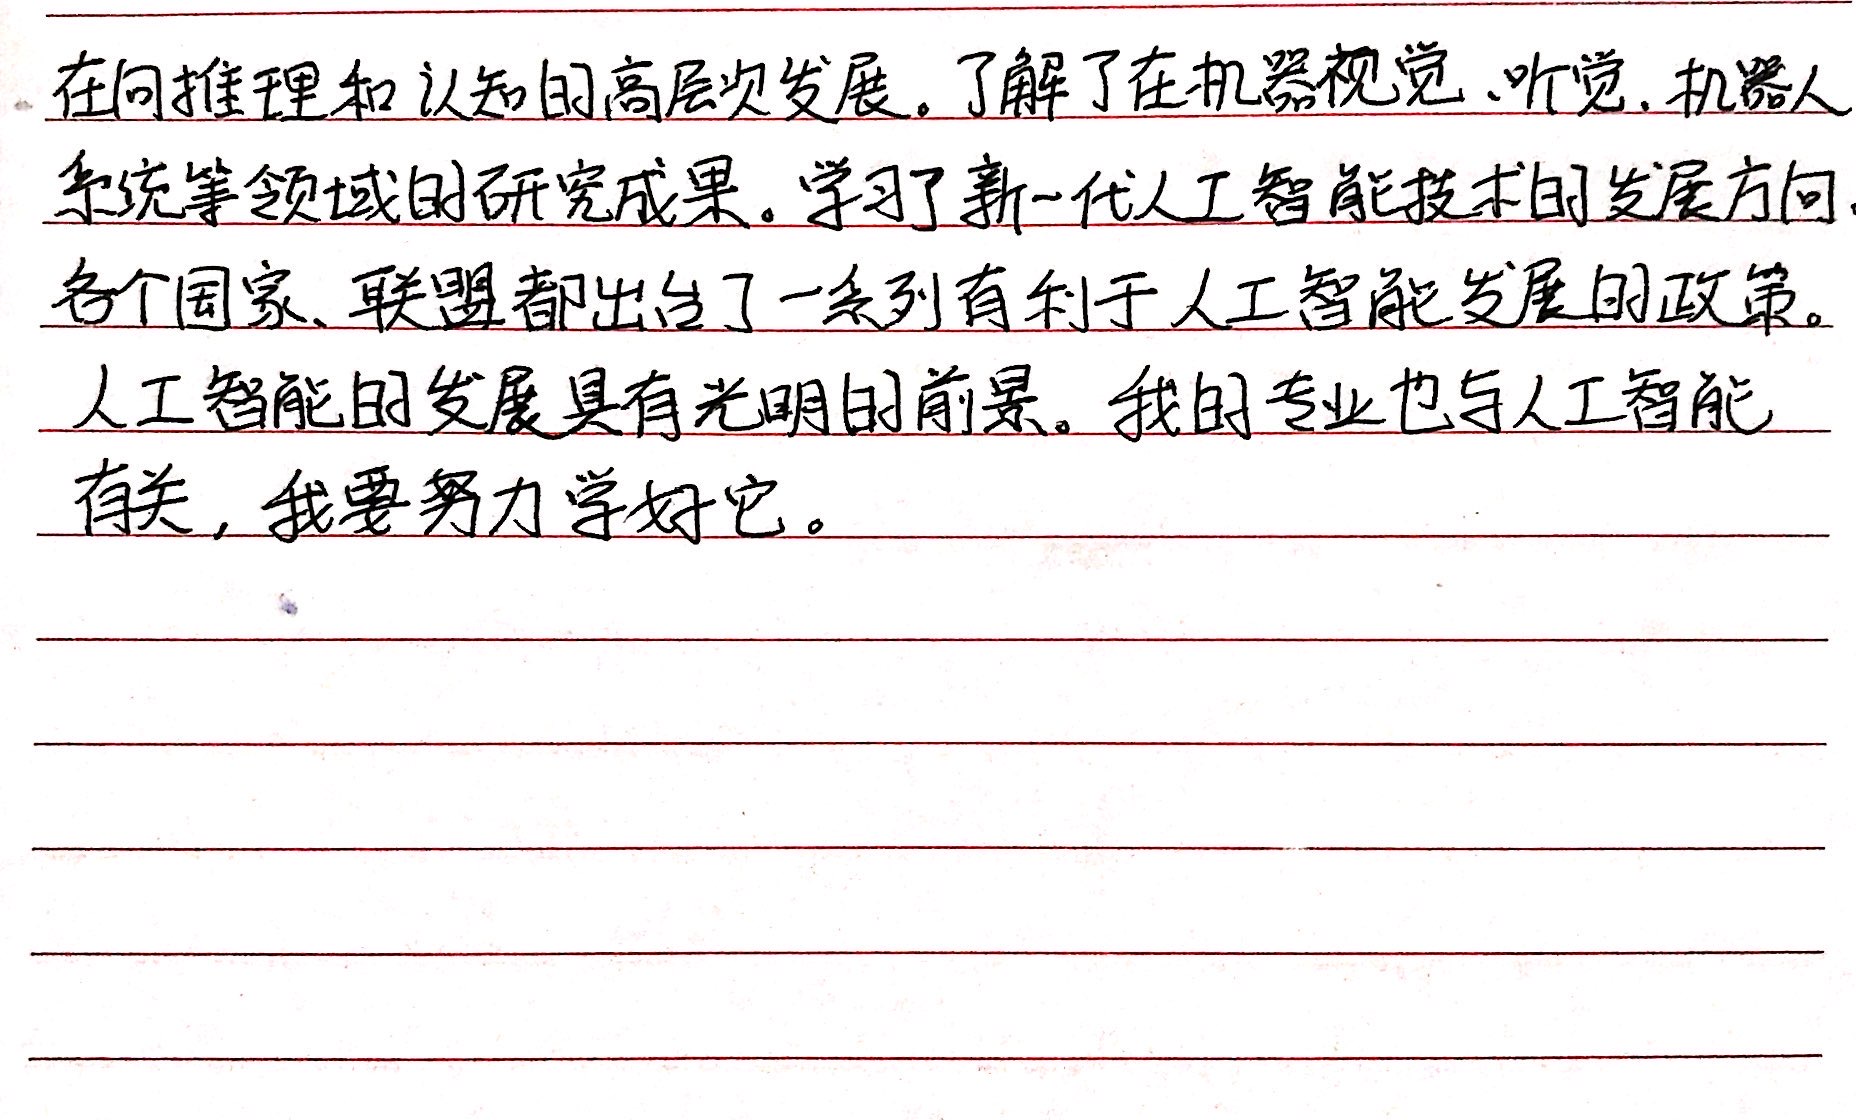 在向推理和认知的高层次发展。了解了在机器视觉、听觉、机器人
系统等领域的研究成果。学习了新一代人工智能技术的发展方向。
各个国家、联盟都出台了一系列有利于人工智能发展的政策。
人工智能的发展具有光明的前景。我的专业也与人工智能
有关，我要努力学好它。